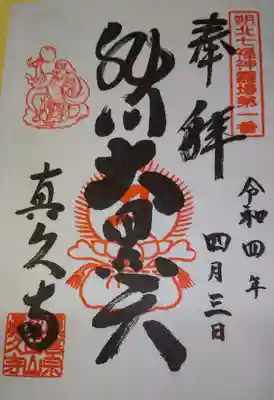 朔北七福神靈場第一番
奉拝
令和四年
四月三日
旭川大黒天
真久寺